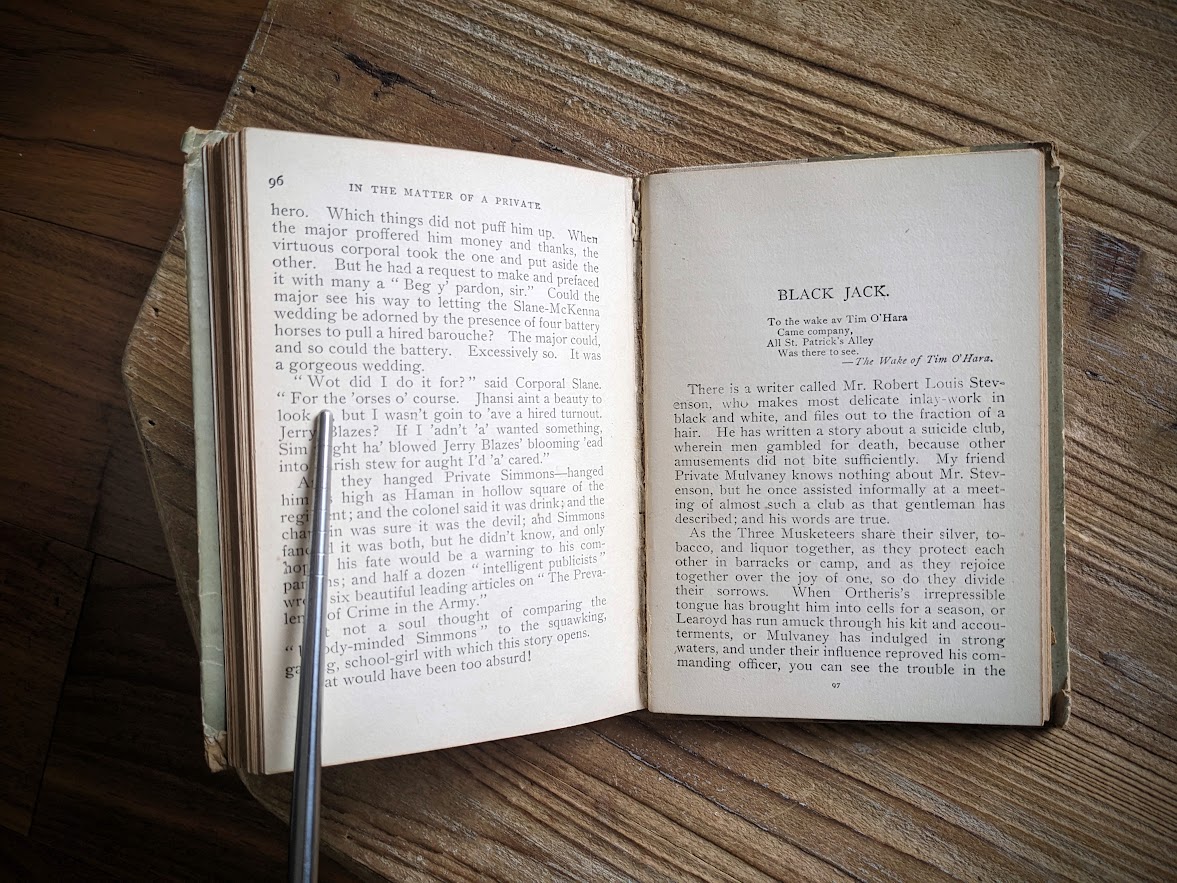 96
IN THE MATTER OF A PRIVATE
hero. Which things did not puff him up. When
the major proffered him money and thanks, the
virtuous corporal took the one and put aside the
other. But he had a request to make and prefaced
it with many a “ Beg y’ pardon, sir.” Could the
major see his way to letting the Slane-McKenna
wedding be adorned by the presence of four battery
horses to pull a hired barouche? The major could,
and so could the battery. Excessively so. It was
a gorgeous wedding.
“ Wot did I do it for? ” said Corporal Slane.
“ For the ’orses o’ course. Jhansi aint a beauty to
look but I wasn’t goin to ’ave a hired turnout.
Jerry Blazes? If I ’adn’t ’a’ wanted something,
Sim might ha’ blowed Jerry Blazes’ blooming ’ead
into Irish stew for aught I’d ’a’ cared.”
And they hanged Private Simmons—hanged
him high as Haman in hollow square of the
regiment; and the colonel said it was drink; and the
chaplain was sure it was the devil; and Simmons
fancied it was both, but he didn’t know, and only
hoped his fate would be a warning to his com-
panions; and half a dozen “ intelligent publicists ”
wrote six beautiful leading articles on “ The Preva-
lence of Crime in the Army.”
not a soul thought of comparing the
“ bloody-minded Simmons ” to the squawking,
gaping, school-girl with which this story opens.
That would have been too absurd!
BLACK JACK.
To the wake av Tim O’Hara
Came company,
All St. Patrick’s Alley
Was there to see.
—The Wake of Tim O’Hara.
There is a writer called Mr. Robert Louis Stev-
enson, who makes most delicate inlay-work in
black and white, and files out to the fraction of a
hair. He has written a story about a suicide club,
wherein men gambled for death, because other
amusements did not bite sufficiently. My friend
Private Mulvaney knows nothing about Mr. Stev-
enson, but he once assisted informally at a meet-
ing of almost such a club as that gentleman has
described; and his words are true.
As the Three Musketeers share their silver, to-
bacco, and liquor together, as they protect each
other in barracks or camp, and as they rejoice
together over the joy of one, so do they divide
their sorrows. When Ortheris’s irrepressible
tongue has brought him into cells for a season, or
Learoyd has run amuck through his kit and accou-
terments, or Mulvaney has indulged in strong
waters, and under their influence reproved his com-
manding officer, you can see the trouble in the
97